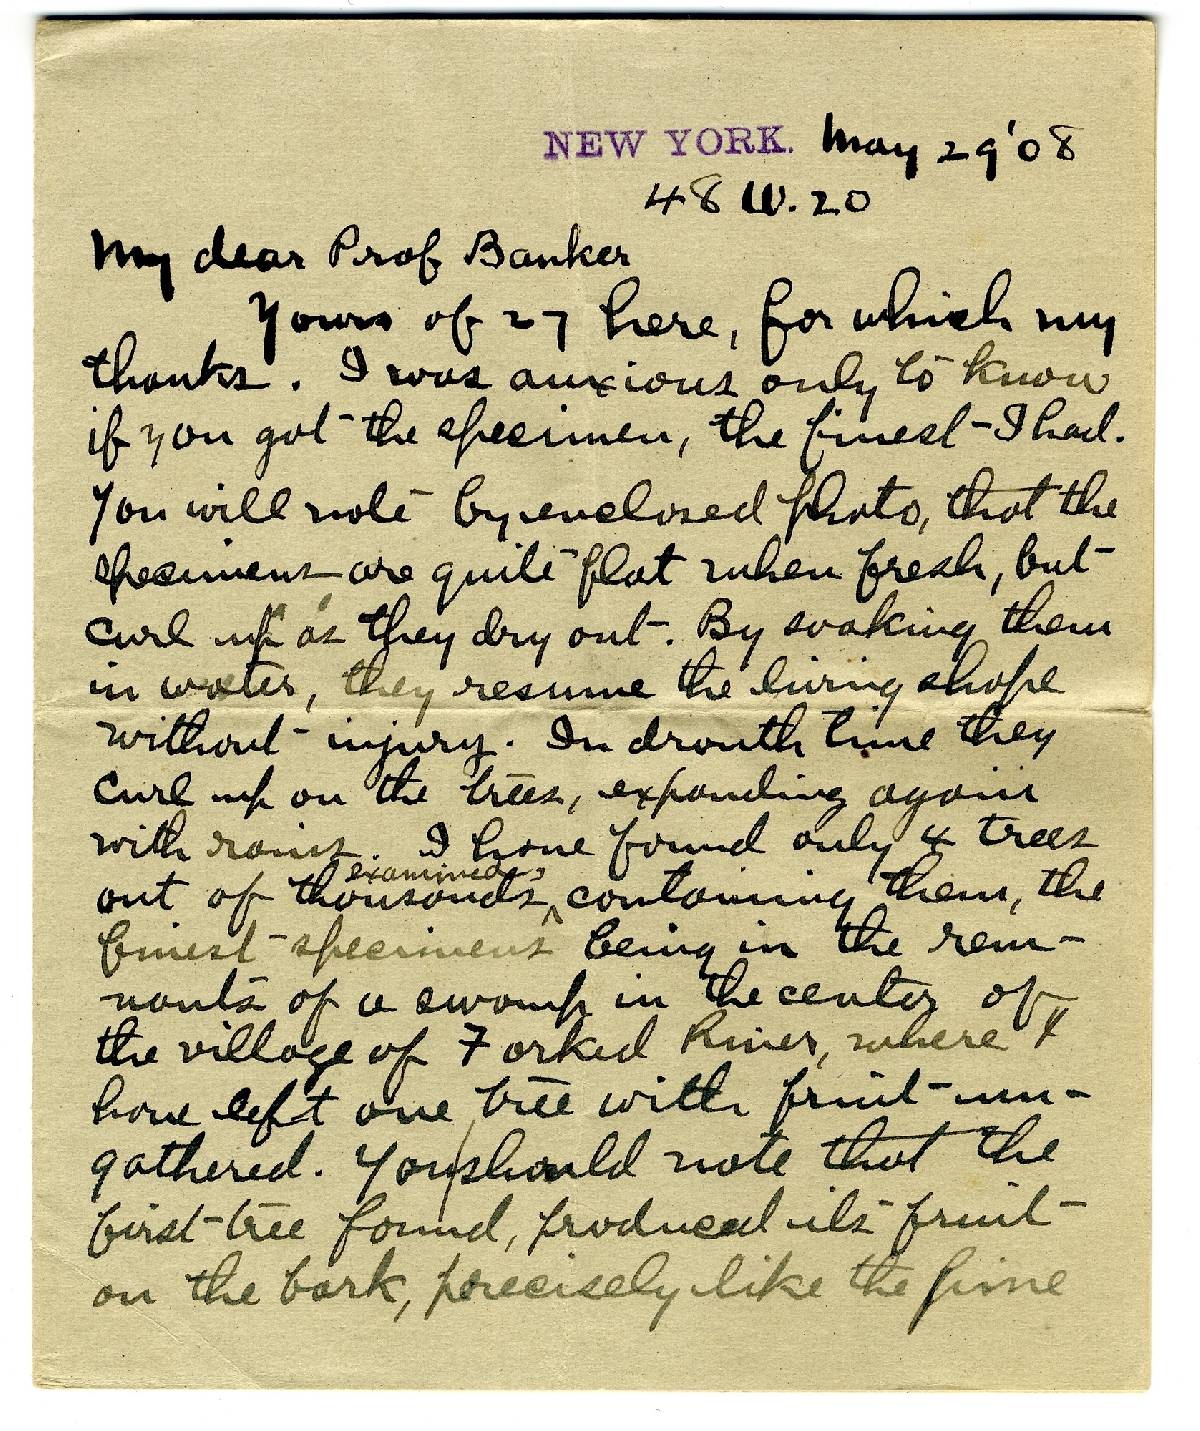 NEW YORK. May 29 '08
48 W. 20
My dear Prof Banker
Yours of 27 here, for which my
thanks. I was anxious only to know
if you got the specimen, the finest I had.
You will note by enclosed photo, that the
specimens are quite flat when fresh, but
curl up as they dry out. By soaking them
in water, they resume the living shape
without injury. In drouth time they
curl up on the trees, expanding again
with rains. I have found only 4 trees
out of thousands examined, containing them, the
finest specimens being in the rem-
nants of a swamp in the center of
the village of Forked River, where I
have left one tree with fruit un-
gathered. You should note that the
first tree found, produced its fruit
on the bark, precisely like the fine